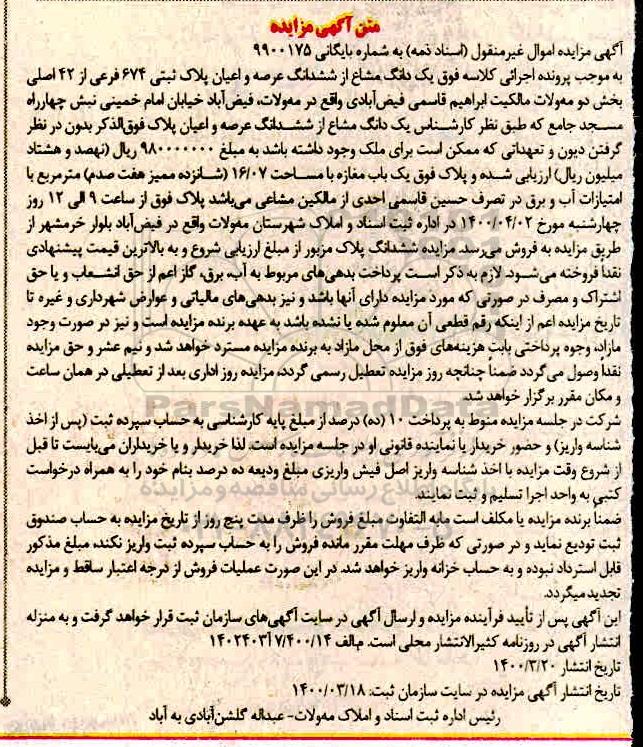 متن آگهی مزایده
آگهی مزایده اموال غیرمنقول (اسناد ذمه) به شماره بایگانی ۹۹۰۰۱۷۵
به موجب پرونده اجرائی کلاسه فوق یک دانگ مشاع از ششدانگ عرصه و اعیان پلاک ثبتی ۶۷۴ فرعی از ۴۲ اصلی
بخش دو مه‌ولات مالکیت ابراهیم قاسمی فیض‌آبادی واقع در مه‌ولات، فیض‌آباد خیابان امام خمینی نبش چهارراه
مسجد جامع که طبق نظر کارشناس یک دانگ مشاع از ششدانگ عرصه و اعیان پلاک فوق‌الذکر بدون در نظر
گرفتن دیون و تعهداتی که ممکن است برای ملک وجود داشته باشد به مبلغ ۹۸۰۰۰۰۰۰۰ ریال (نهصد و هشتاد
میلیون ریال) ارزیابی شده و پلاک فوق یک باب مغازه با مساحت ۱۶/۰۷ (شانزده ممیز هفت صدم) مترمربع با
امتیازات آب و برق در تصرف حسین قاسمی احدی از مالکین مشاعی می‌باشد پلاک فوق از ساعت ۹ الی ۱۲ روز
چهارشنبه مورخ ۱۴۰۰/۰۴/۰۲ در اداره ثبت اسناد و املاک شهرستان مه‌ولات واقع در فیض‌آباد بلوار خرمشهر از
طریق مزایده به فروش می‌رسد. مزایده ششدانگ پلاک مزبور از مبلغ ارزیابی شروع و به بالاترین قیمت پیشنهادی
نقدا فروخته می‌شود. لازم به ذکر است پرداخت بدهی‌های مربوط به آب، برق، گاز اعم از حق انشعاب و یا حق
اشتراک و مصرف در صورتی که مورد مزایده دارای آنها باشد و نیز بدهی‌های مالیاتی و عوارض شهرداری و غیره تا
تاریخ مزایده اعم از اینکه رقم قطعی آن معلوم شده یا نشده باشد به عهده برنده مزایده است و نیز در صورت وجود
مازاد، وجوه پرداختی بابت هزینه‌های فوق از محل مازاد به برنده مزایده مسترد خواهد شد و نیم عشر و حق مزایده
نقدا وصول می‌گردد ضمناً چنانچه روز مزایده تعطیل رسمی گردد، مزایده روز اداری بعد از تعطیلی در همان ساعت
و مکان مقرر برگزار خواهد شد.
شرکت در جلسه مزایده منوط به پرداخت ۱۰ (ده) درصد از مبلغ پایه کارشناسی به حساب سپرده ثبت (پس از اخذ
شناسه واریز) و حضور خریدار یا نماینده قانونی او در جلسه مزایده است. لذا خریدار و یا خریداران می‌بایست تا قبل
از شروع وقت مزایده با اخذ شناسه واریز اصل فیش واریزی مبلغ ودیعه ده درصد بنام خود را به همراه درخواست
کتبی به واحد اجرا تسلیم و ثبت نمایند.
ضمناً برنده مزایده یا مکلف است مابه التفاوت مبلغ فروش را ظرف مدت پنج روز از تاریخ مزایده به حساب صندوق
ثبت تودیع نماید و در صورتی که ظرف مهلت مقرر مانده فروش را به حساب سپرده ثبت واریز نکند، مبلغ مذکور
قابل استرداد نبوده و به حساب خزانه واریز خواهد شد. در این صورت عملیات فروش از درجه اعتبار ساقط و مزایده
تجدید میگردد.
این آگهی پس از تأیید فرآینده مزایده و ارسال آگهی در سایت آگهی‌های سازمان ثبت قرار خواهد گرفت و به منزله
انتشار آگهی در روزنامه کثیرالانتشار محلی است. م‌الف ۷/۴۰۰/۱۴
تاریخ انتشار ۱۴۰۰/۳/۲۰
تاریخ انتشار آگهی مزایده در سایت سازمان ثبت: ۱۴۰۰/۰۳/۱۸
رئیس اداره ثبت اسناد و املاک مه‌ولات- عبداله گلشن‌آبادی به آباد
ParsNamadData
پایگاه اطلاع رسانی مناقصه و مزایده